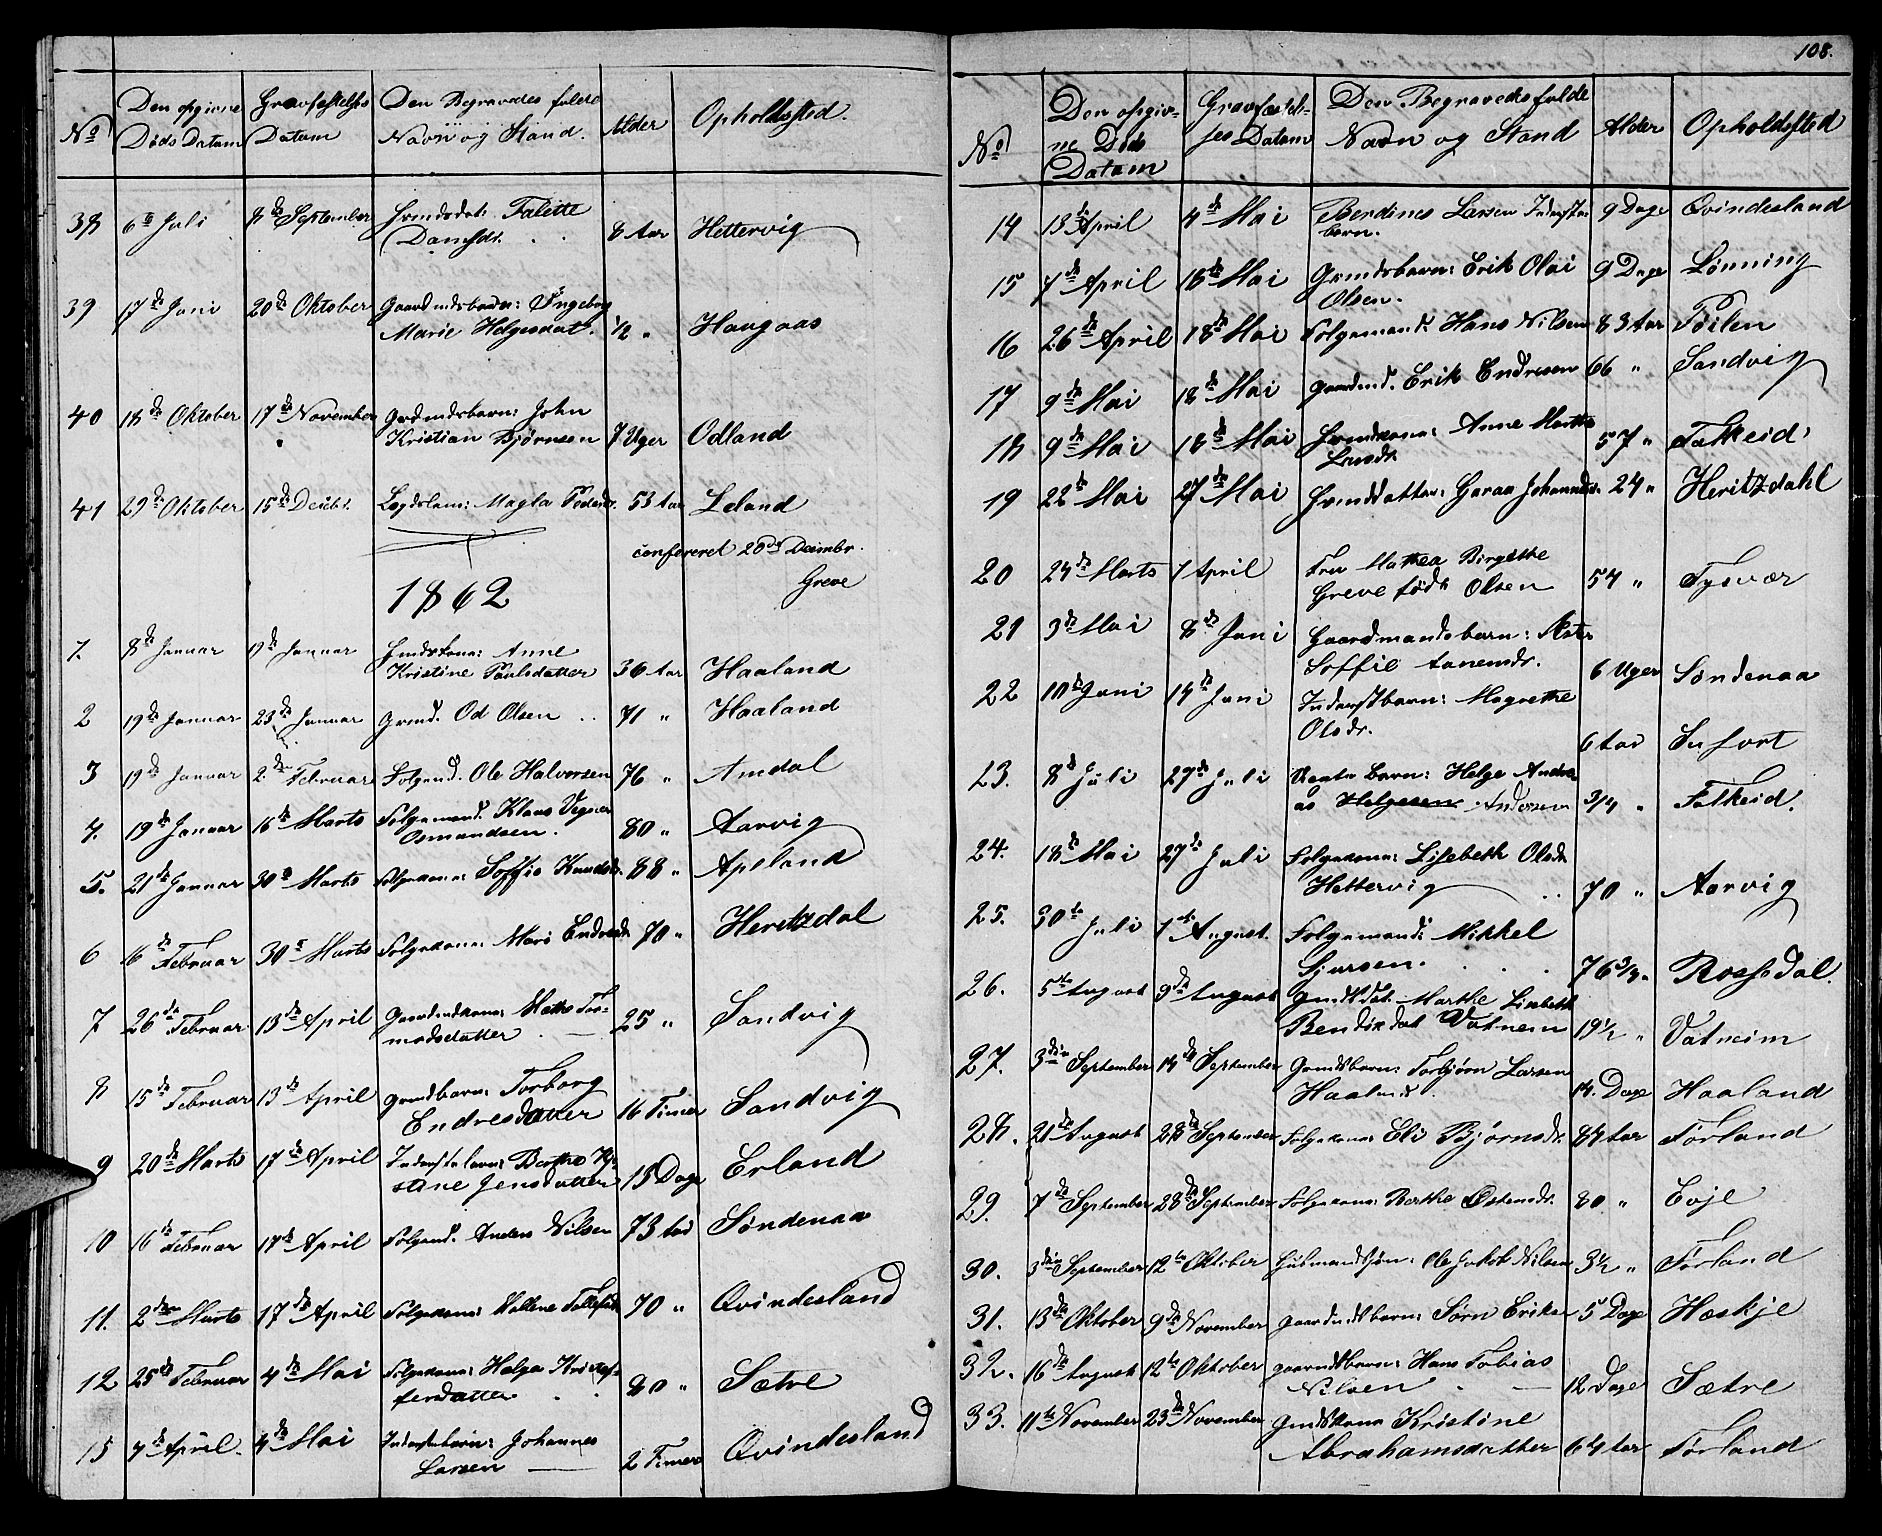 No Den opgivne Døds Datum Gravfæstelses Datum Den Begravedes fulde Navn og Stand. Alder Opholdssted.
38 6te Juli 8de September Grmdsdat: Talette
Danielsdt. 8 Aar Hettervig
39 17de Juni 20de Oktober Gaardmdsbarn: Ingeborg
Marie Helgesdat. 1/2 " Haugaas
40 18de Oktober 17de November Grdmdsbarn: John
Kristian Bjørnsen 7 Uger Odland
41 29de Oktober 15de Decbr. Lægdslem: Magla 53 Aar Leland
confereret 20de Decimbr.
Greve
1862
1. 8de Januar 19de Januar Gmdskone: Anne
Kristine Poulsdatter 36 Aar Haaland
2 19de Januar 23de Januar Grmd. Od Olsen .. 71 " Haaland
3 19de Januar 2den Februar Folgmd. Ole Halvorsen 76 " Amdal
4. 19de Januar 16de Marts Folgemand. Klaus
Osmundsen. 80 " Aarvig
5. 21de Januar 30te Marts Folgekone: Soffie Knudsdt. 88 " Apeland
6 16de Februar 30te Marts Folgekone: Mari Endresdt 70 " Heritzdal
7 26de Februar 13de April Gaardmdskone: Marthe Tor-
modsdatter 25 " Sandvig
8 15de Februar 13de April Grmdbarn: Torborg
Endresdatter 16 Timer Sandvig
9 20de Marts 17de April Inderstebarn: Berthe Kri-
stine Jensdatter 13 Dage Erland
10 16de Februar 17de April Folgmd. Anders Nilsen 73 Aar Søndenaa
11. 2den Marts 17de April Folgekone: Mallene Tollefsdt 70 " Qvindesland
12 25de Februar 4de Mai Folgekone: Helga Kristof-
fersdatter 80 " Sætre
13 4de April. 4de Mai Inderstebarn: Johannes
Larsen — 2 Timer Qvindesland
108.
No Den opgiv-
ne Døds
Datum Gravfæstel-
ses Datum Den Begravedes fulde
Navn og Stand Alder Opholdssted
14 13de April 4de Mai Berdines Larsen Inderste
barn. 9 Dage Qvindesland
15 7de April 18de Mai Grmdsbarn: Erik Olai
Olsen. 9 Dage Lønning
16 26de April 18de Mai Folgemand: Hans Nilsen 83 Aar
17 9de Mai 18de Mai Gaardmd. Erik Endresen 66 " Sandvig
18 9de Mai 18de Mai Grmdkone: Anne Marthe
Larsdt. 57 " Falkeid
19 22de Mai 27de Mai Grmddatter: Johannesdt. 24 " Heritzdahl
20 24de Marts 1 April Fru Mathea Birgithe
Greve født Olsen 54 " Tysvær
21 3de Mai 8de Juni Gaardmandsbarn:
Soffie 6 Uger Søndenaa
22 10de Juni 14de Juni Inderstbarn: Magrethe
Olsdr. 6 Aar
23. 8de Juli 27de Juli barn: Helge Andre
as Helgesen Andersen 3/4 " Falkeid.
24. 18de Mai 27de Juli Folgekone: Lisebeth Olsdt
Hettervig 70 " Aarvig
25. 30te Juli 1ste August. Folgemand: Mikkel
Sjursen. 76 3/4 " Rossedal.
26. 5te August 9de August Gmdsdat: Marthe Lisbeth
Bendixdat Vatnem 19 1/2 " Vatneim
27. 3die September 14de September Grmdsbarn: Torbjørn Larsen
Haaland. 14. Dage Haaland
28. 21de August 28de September Folgekone: Eli Bjørnsdt. 84 Aar Førland
29. 7de September 28de September Folgekone: Berthe Østensdt. 80 " Evje
30. 3die September 12te Oktober Husmandssøn: Ole Jakob Nilsen 3 1/2 " Førland
31. 13de Oktober 9de November Gaardmdsbarn: Sørn Eriksen 5 Dage Heskje
32. 16de August 12te Oktober Gaarmdsbarn: Hans Tobias
Nilsen 12 Dage Sætre
33. 11te November 23de November Gmdskone Kristine
Abrahamsdatter 64 Aar Førland